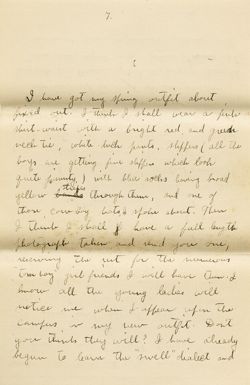 7.
I have got my spring outfit about
fixed out. I think I shall wear a pink
shirt-waist with a bright red and green
neck tie, white duck pants, slippers (all the
boys are getting fine slippers which look
quite ) with blue socks having broad
yellow stripes through them, and one of
those cow-boy hats I spoke about. Then
I think I shall have a full length
photograph taken and send you one,
reserving the rest for the numerous
girl friends I will have then. I
know all the young ladies will
notice me when I appear upon the
campus in my new outfit. Don't
you think they will? I have already
begun to learn the "swell" dialect and